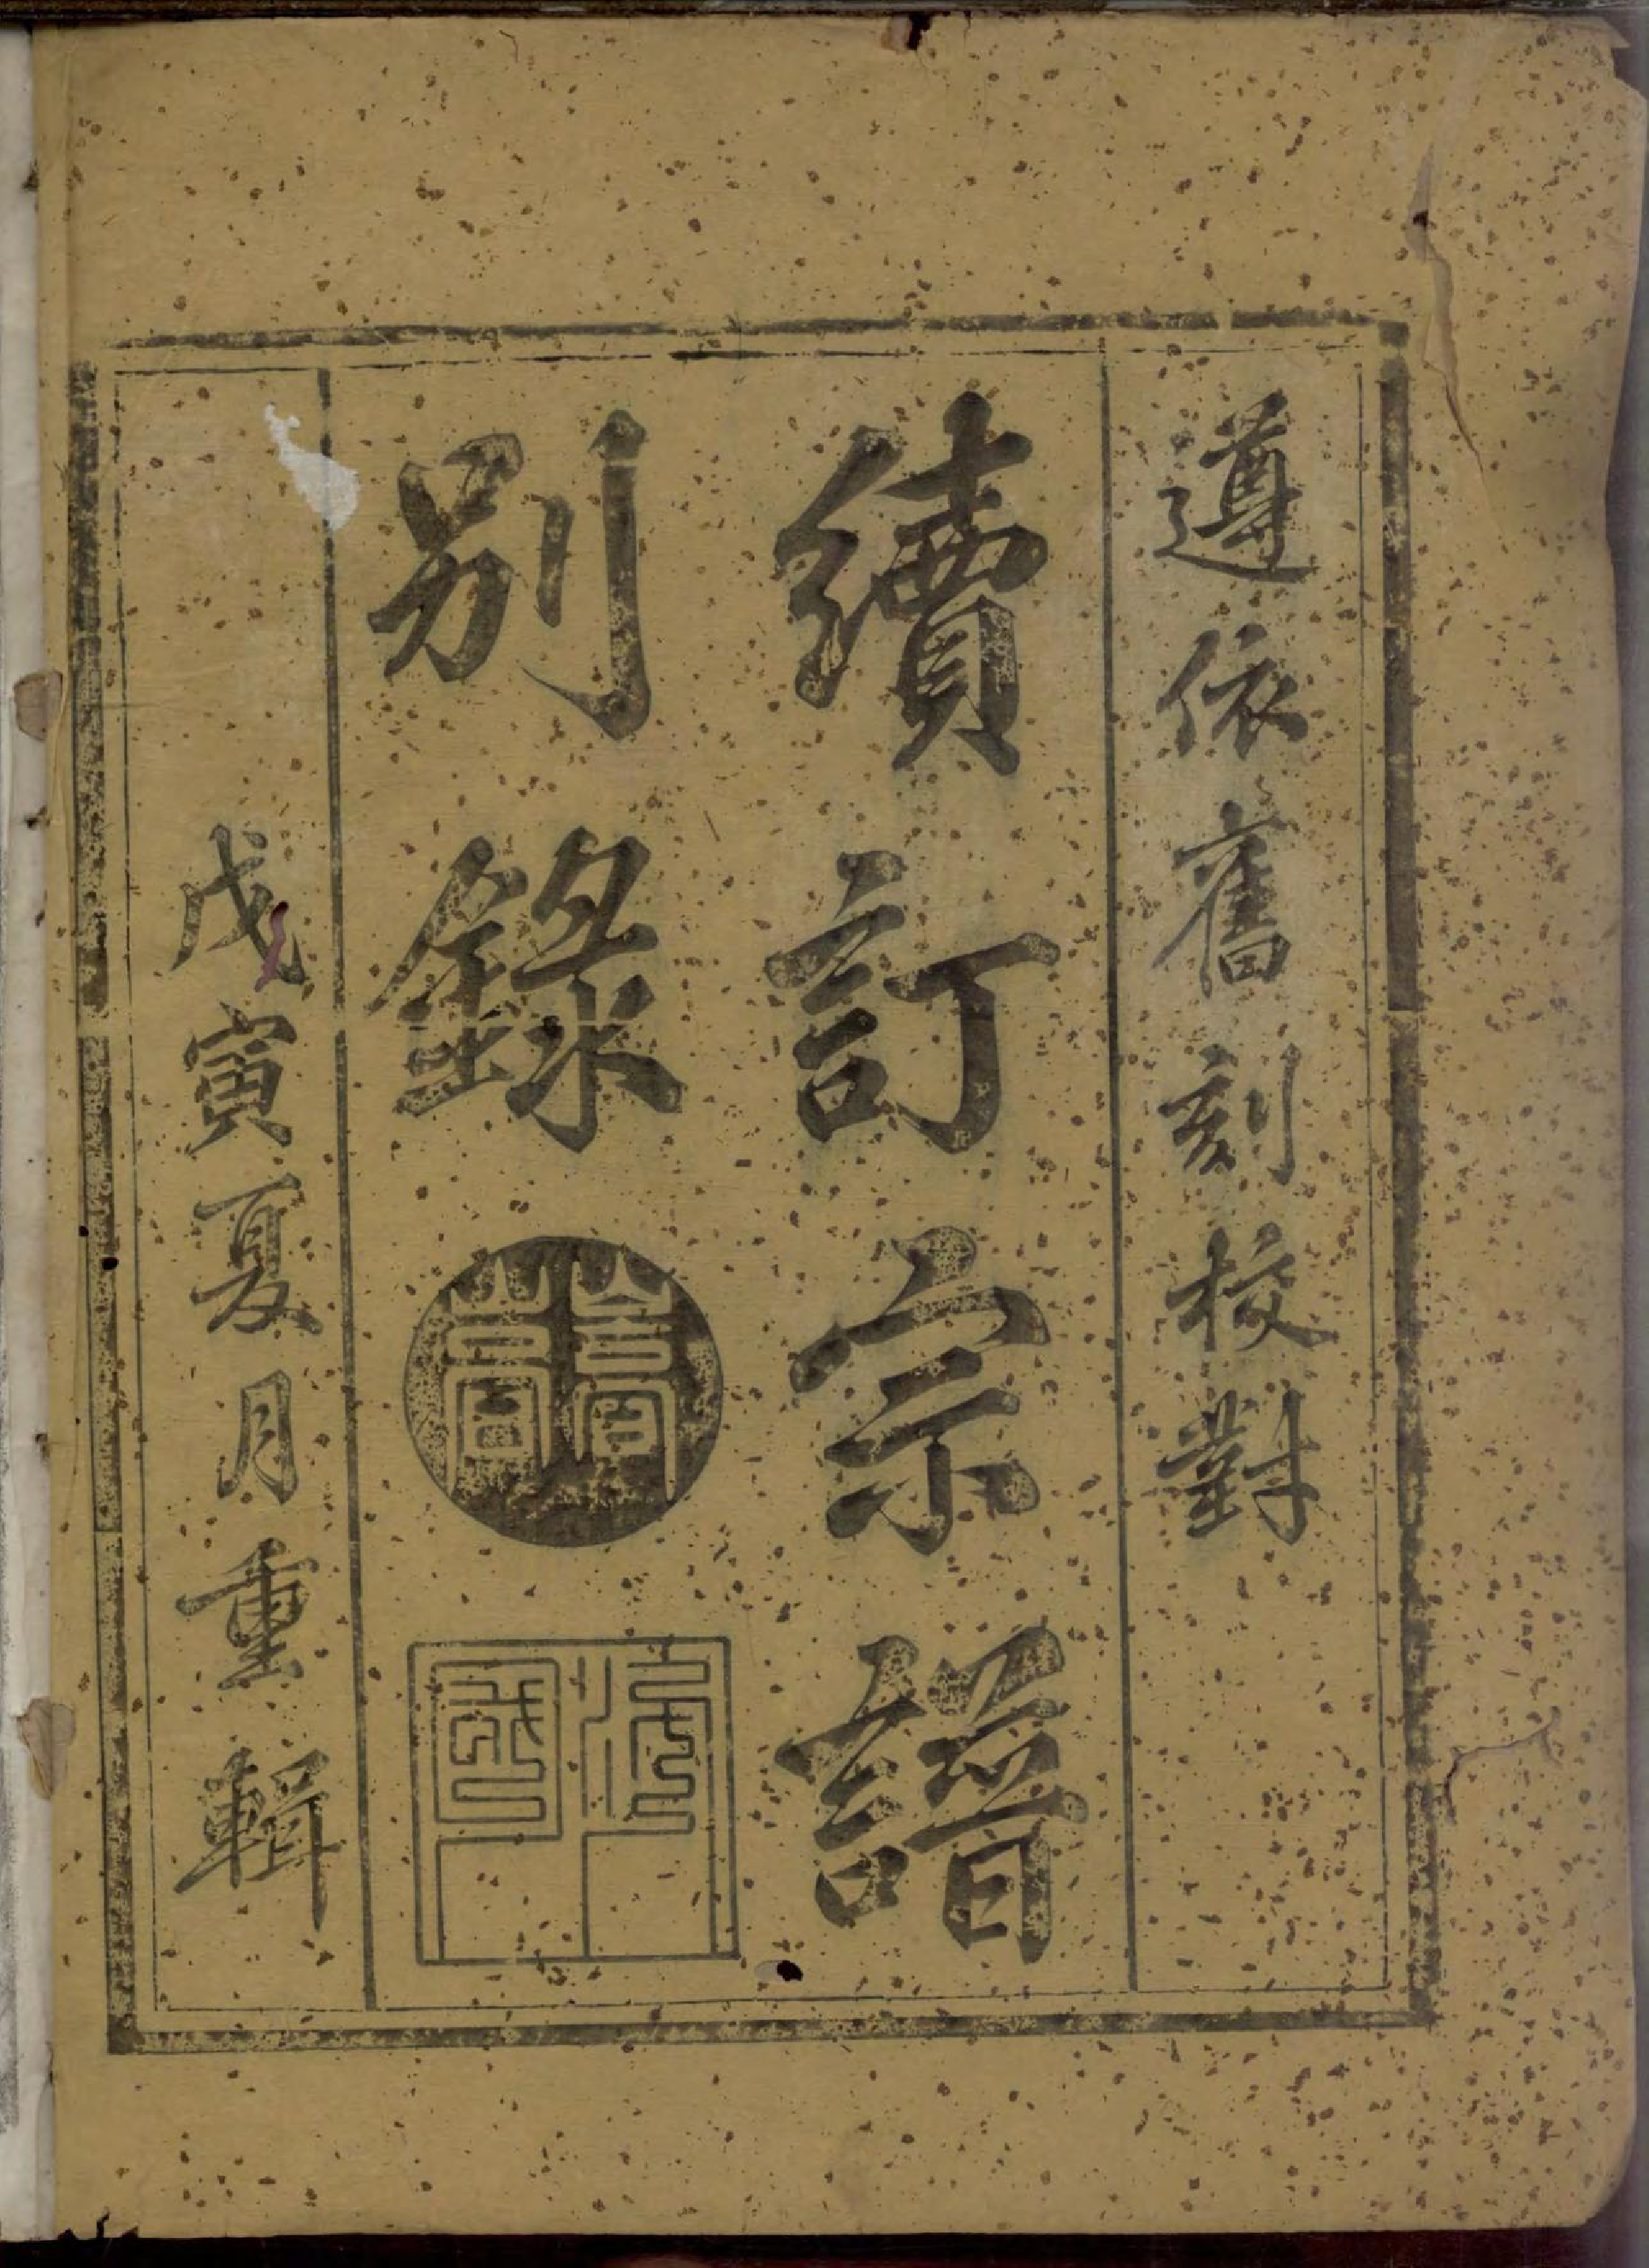 遵依舊刻校對
續訂宗譜
別錄
戊寅夏月重輯